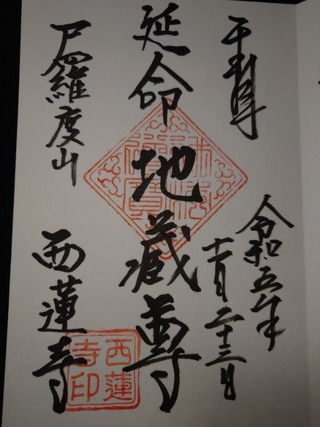 令和五年
十一月二十三日
延命地蔵尊
尸羅度山
西蓮寺
西蓮
寺印